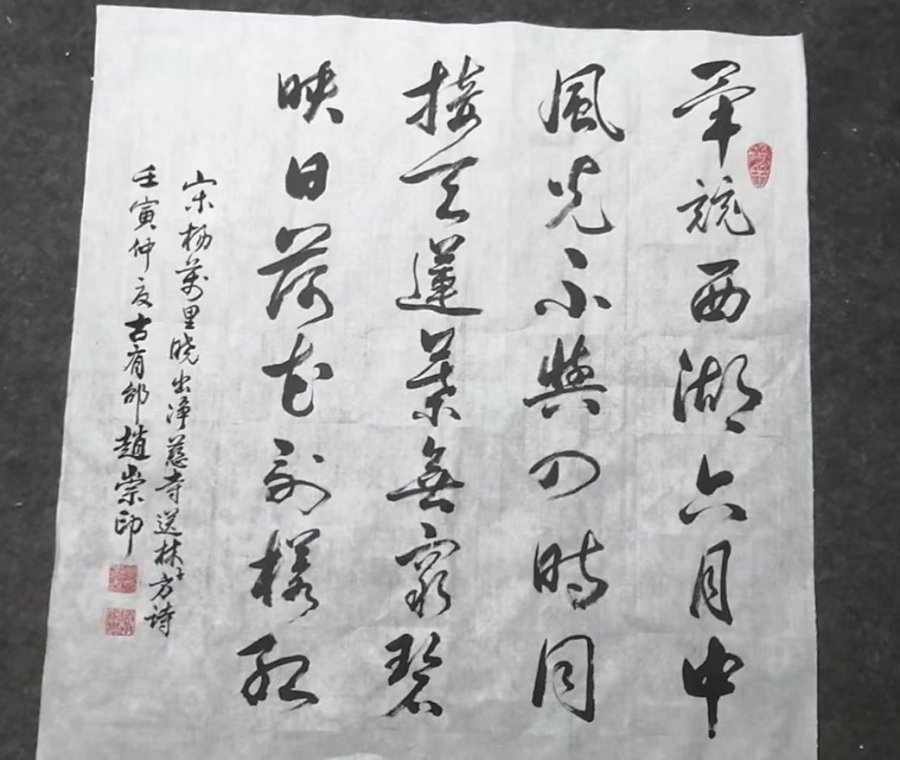 畢竟西湖六月中
風光不與四時同
接天蓮葉無窮碧
映日荷花别樣紅
宋楊萬里曉出淨慈寺送林子方詩
壬寅仲夏古有邰趙崇印